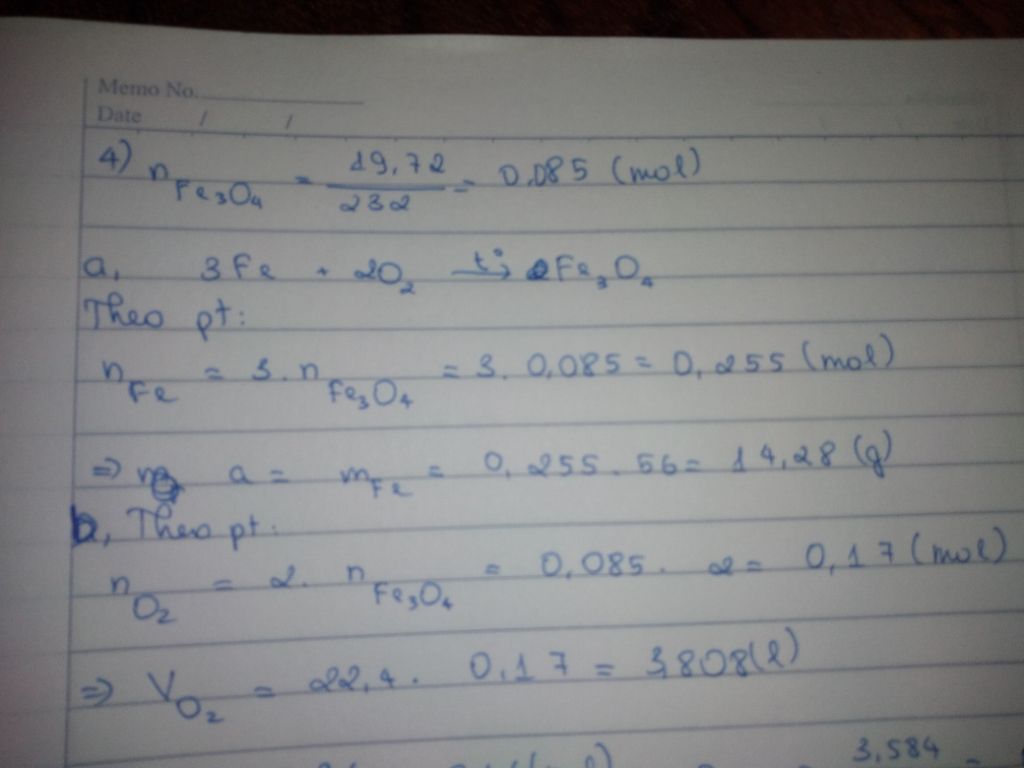 Memo No.
Date / /
4) n Fe₃O₄ = 19,72 / 232 = 0,085 (mol)
a, 3Fe + 2O₂ t°→ Fe₃O₄
Theo pt:
n Fe = 3. n Fe₃O₄ = 3. 0,085 = 0,255 (mol)
=> a = m Fe = 0,255. 56 = 14,28 (g)
b, Theo pt:
n O₂ = 2. n Fe₃O₄ = 0,085. 2 = 0,17 (mol)
=> V O₂ = 22,4. 0,17 = 3,808 (l)
3,584